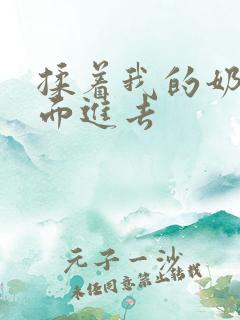 揉着我的奶
而进去
元子一沙
未经同意禁止转载